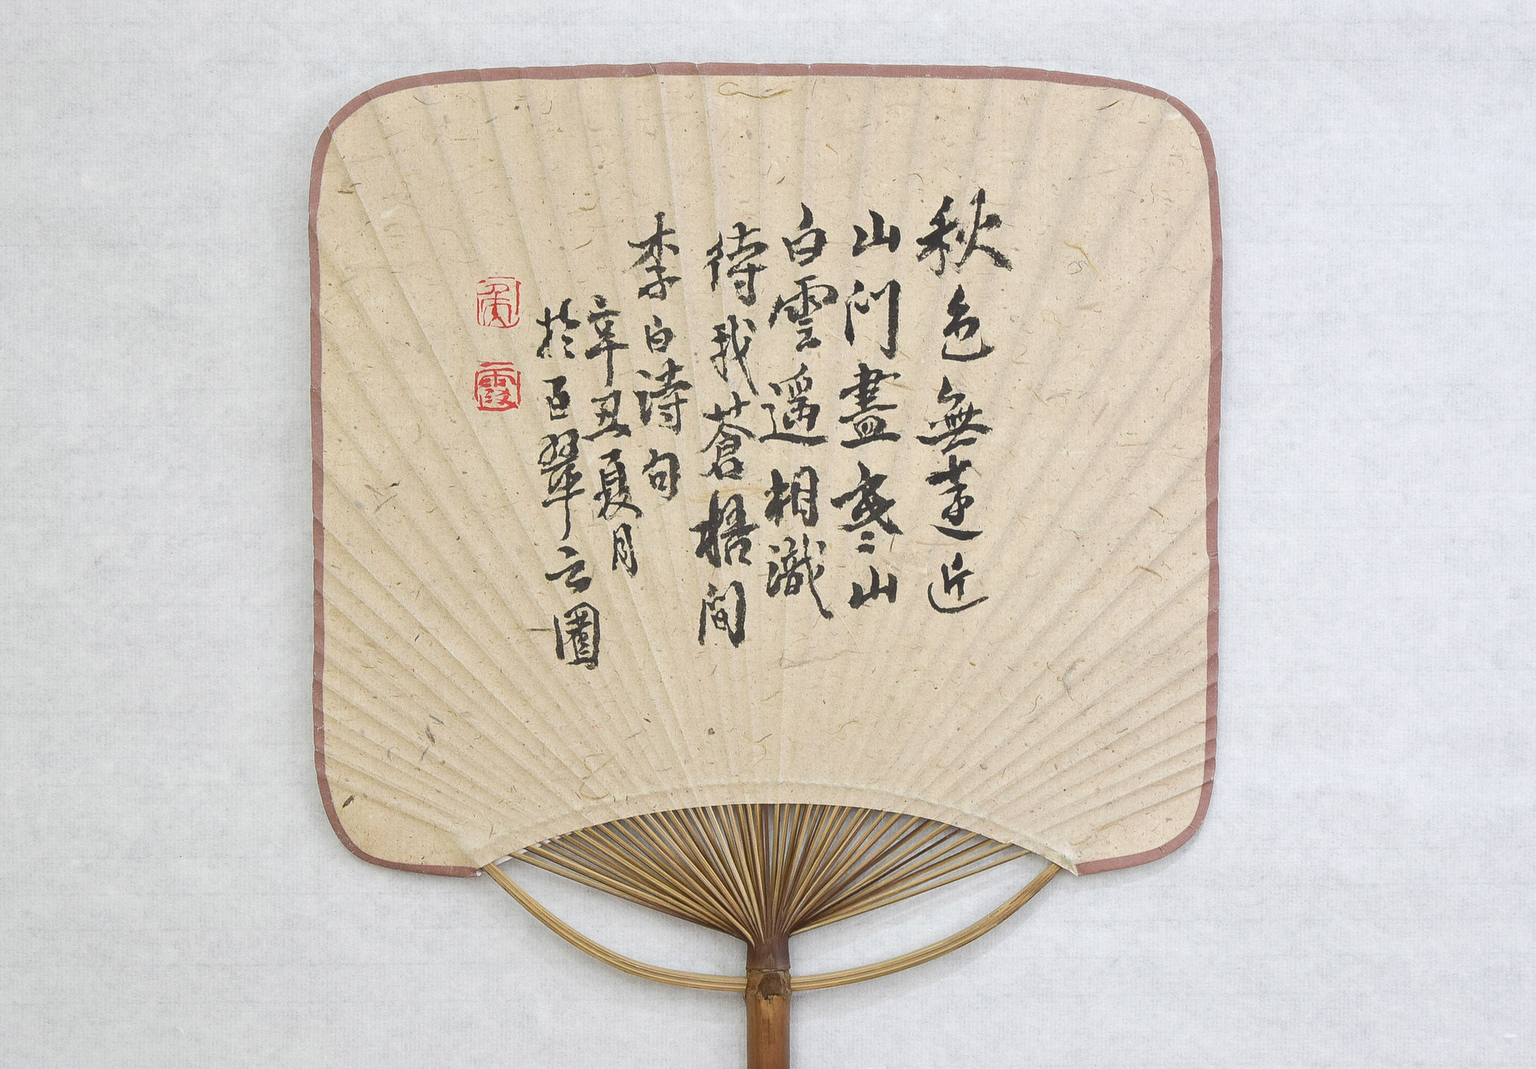 秋色無遠近
山門盡寒山
白雲遥相識
待我蒼梧間
李白詩句
辛丑夏月
於百翠云圖